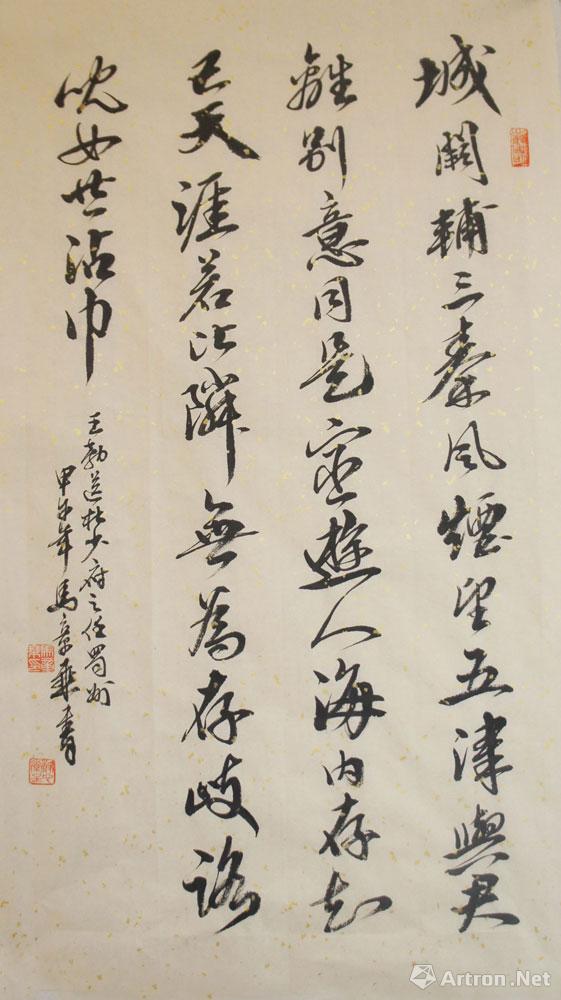 城闕輔三秦風煙望五津與君
離別意同是宦遊人海内存知
己天涯若比隣無為在歧路
兒女共沾巾
王勃送杜少府之任蜀州
甲午年馬章乘書
Artron.Net